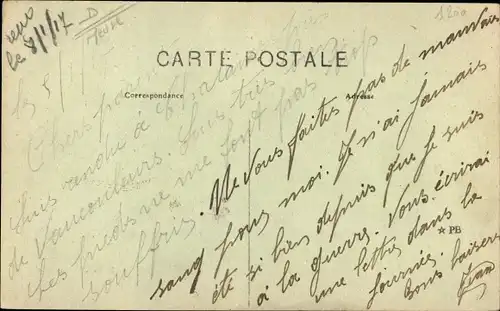 reçu
le 8/1/17
D
Meuse
CARTE POSTALE
Correspondance
Adresse
Chers parents
Suis rendu à
de Vaucouleurs. Suis très
Les pieds ne me font pas trop
souffrir. Ne vous faites pas de mauvais
sang pour moi. Je n'ai jamais
été si bien depuis que je suis
à la guerre. Vous écrirai
une lettre dans la
journée.
Bons baisers
Jean
★ PB